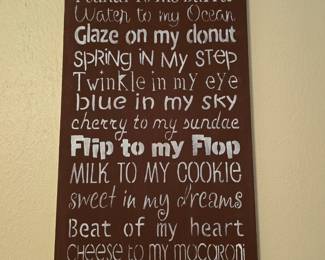 Water to my Ocean
Glaze on my donut
SPRiNG iN MY STEP
Twinkle in my eye
blue in my sky
cherry to my sundae
Flip to my Flop
MILK TO MY COOKIE
sweet in my dreams
Beat of my heart
CHEESE TO MY MACORONi